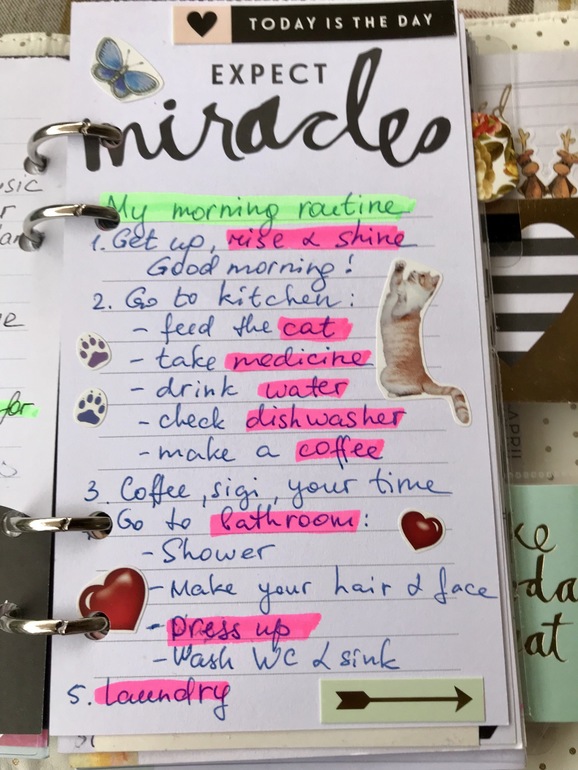 TODAY IS THE DAY
EXPECT
miracles
My morning routine
1. Get up, rise & shine
Good morning!
2. Go to kitchen:
- feed the cat
- take medicine
- drink water
- check dishwasher
- make a coffee
3. Coffee, sigi, your time
Go to bathroom:
- Shower
- Make your hair & face
- Dress up
- Wash WC & sink
5. Laundry
for
APRIL